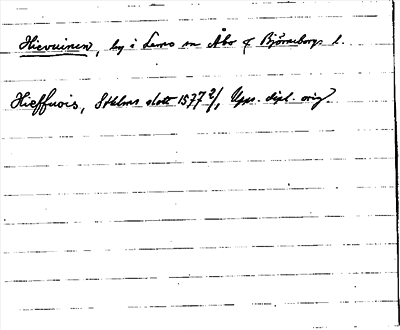 Hievainen, by i Lemo sn Åbo & Björneborgs l.
Hieffuois, Sthlms slott 1577 2/, Upps. dipl. orig.